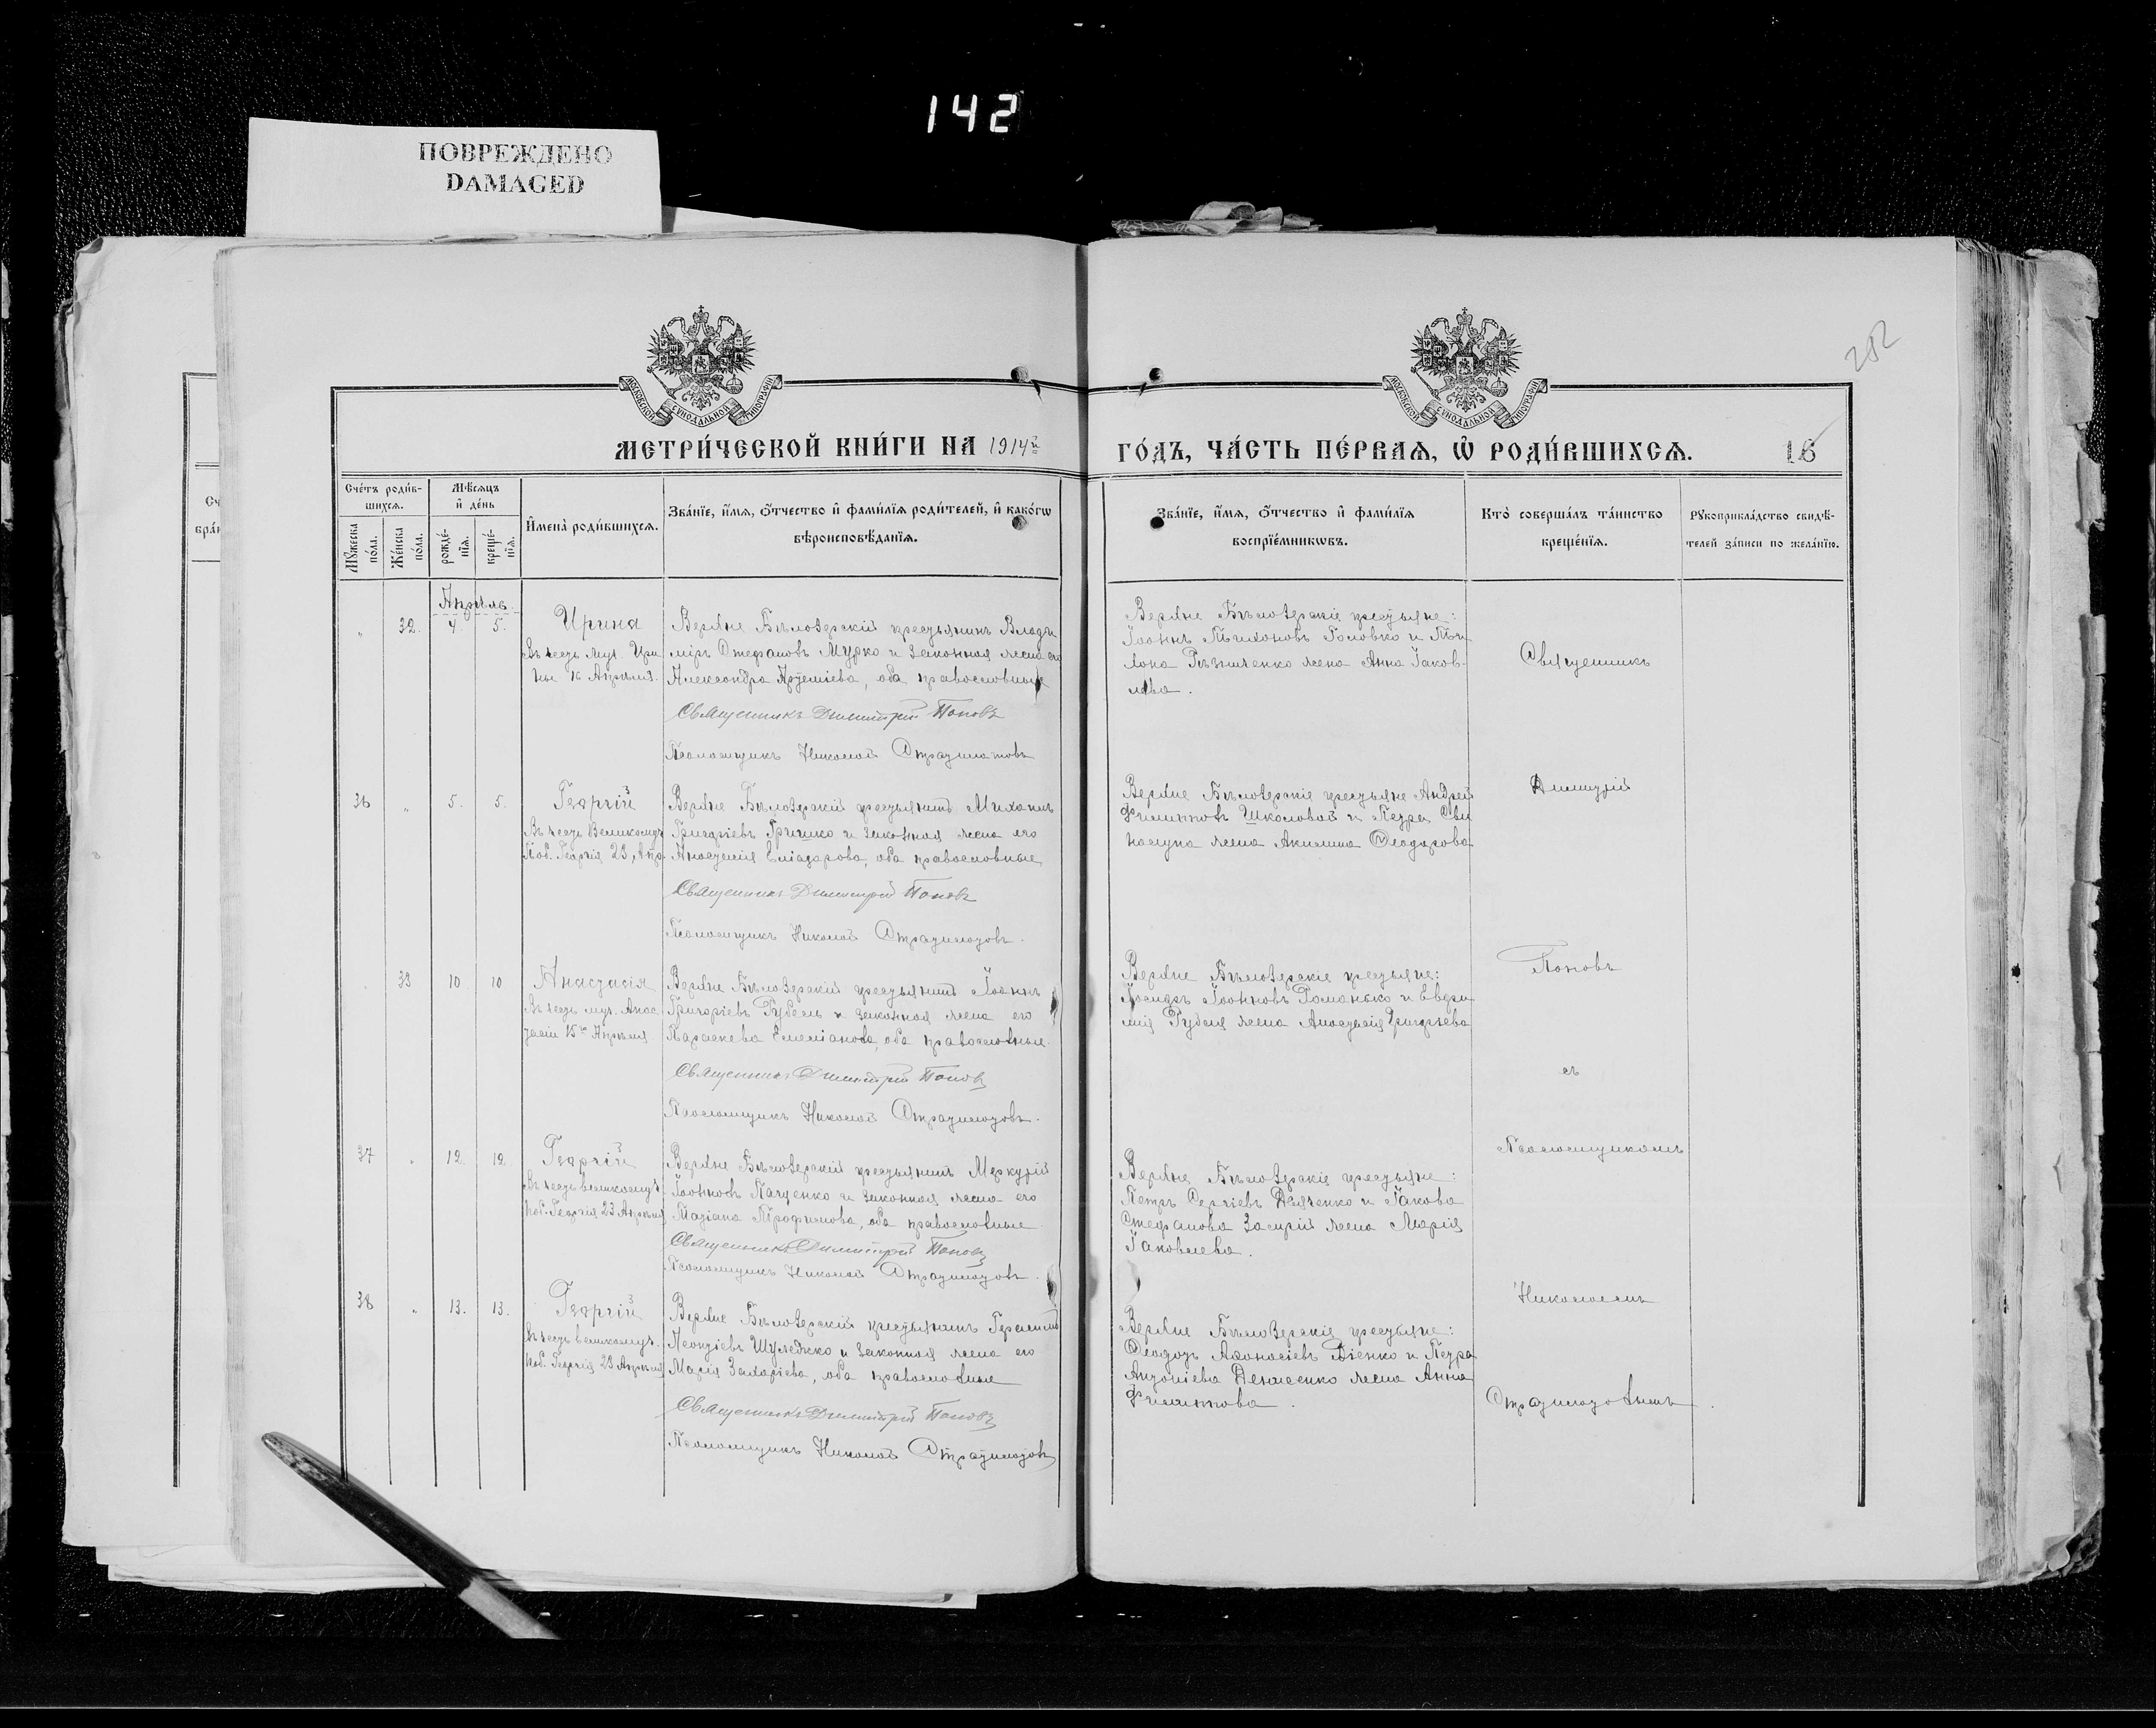 142
ПОВРЕЖДЕНО
DAMAGED
252
МОСКОВСКОЙ СѴНОДАЛЬНОЙ ТИПОГРАФІИ
МОСКОВСКОЙ СѴНОДАЛЬНОЙ ТИПОГРАФІИ
МЕТРИ́ЧЕСКОЙ КНИ́ГИ НА 1914й
ГО́ДЪ, ЧА́СТЬ ПЕ́РВАѦ, Ѡ҆ РОДИ́ВШИХСѦ. 16
Сче́тъ роди́в-
шихсѧ.
Мꙋ́жеска по́ла.
Же́нска по́ла.
Мѣ́сѧцъ
и҆ де́нь
рожде́-
нїѧ.
креще́-
нїѧ.
И҆мена̀ роди́вшихсѧ.
Зва́нїе, и҆́мѧ, ѻ҆́тчество и҆ фами́лїѧ роди́телей, и҆ како́гѡ
вѣроисповѣ́данїѧ.
Зва́нїе, и҆́мѧ, ѻ҆́тчество и҆ фами́лїѧ
воспрїе́мникѡвъ.
Кто̀ соверша́лъ та́инство
креще́нїѧ.
Рꙋкоприкла́дство свидѣ́-
телей за́писи по жела́нїю.
Сч
бра́к
Апрѣль.
" 32. 4. 5. Ирина
Въ честь муч. Ири
ны 16 Апрѣля.
Верхне Бѣлозерскій крестьянинъ Влади
міръ Стефановъ Мурко и законная жена его
Александра Артеміева, оба православные
Священникъ Димитрій Поповъ
Псаломщикъ Николай Стратилатовъ
Верхне Бѣлозерскіе крестьяне:
Іоаннъ Тихоновъ Головко и
жена Анна Іаков-
лева.
Священникъ
36 " 5. 5. Георгій
Въ честь Великомуч
Поб. Георгія 23 Апр.
Верхне Бѣлозерскій крестьянинъ Михаилъ
Григоріевъ Гришко и законная жена его
Анастасія Еліазарова, оба православные
Священникъ Димитрій Поповъ
Псаломщикъ Николай Стратилатовъ.
Верхне Бѣлозерскіе крестьяне Андрей
Филипповъ Школовой и Петра Сви
наступа жена Акилина Ѳеодорова
Димитрій
33 10 10 Анастасія
Въ честь муч. Анас
тасіи 15го Апрѣля.
Верхне Бѣлозерскій крестьянинъ Іоаннъ
Григоріевъ Рубель и законная жена его
Параскева Емеліанова, оба православные.
Священникъ Димитрій Поповъ
Псаломщикъ Николай Стратилатовъ.
Верхне Бѣлозерскіе крестьяне:
Іосифъ Іоанновъ Романько и Евфи
мія Рубля жена Анастасія Григорьева
Поповъ
съ
37 " 12 12 Георгій
Въ честь великомуч.
поб. Георгія 23 Апрѣля
Верхне Бѣлозерскій крестьянинъ Меркурій
Іоанновъ Паученко и законная жена его
Татіана Трофимова, оба православные
Священникъ Димитрій Поповъ
Псаломщикъ Николай Стратилатовъ.
Верхне Бѣлозерскіе крестьяне:
Петръ Сергіевъ Дьяченко и Іакова
Стефанова жена Марія
Іаковлева.
Псаломщикомъ
38 " 13. 13. Георгій
Въ честь великомуч.
поб. Георгія 23 Апрѣля
Верхне Бѣлозерскій крестьянинъ Герасимъ
Леонтіевъ Шулежко и законная жена его
Марія Захаріева, оба православные
Священникъ Димитрій Поповъ
Псаломщикъ Николай Стратилатовъ
Верхне Бѣлозерскіе крестьяне:
Ѳеодоръ Аѳанасіевъ Діенко и Петра
Антоніева Денисенко жена Анна
Филиппова.
Николаемъ
Стратилатовымъ.